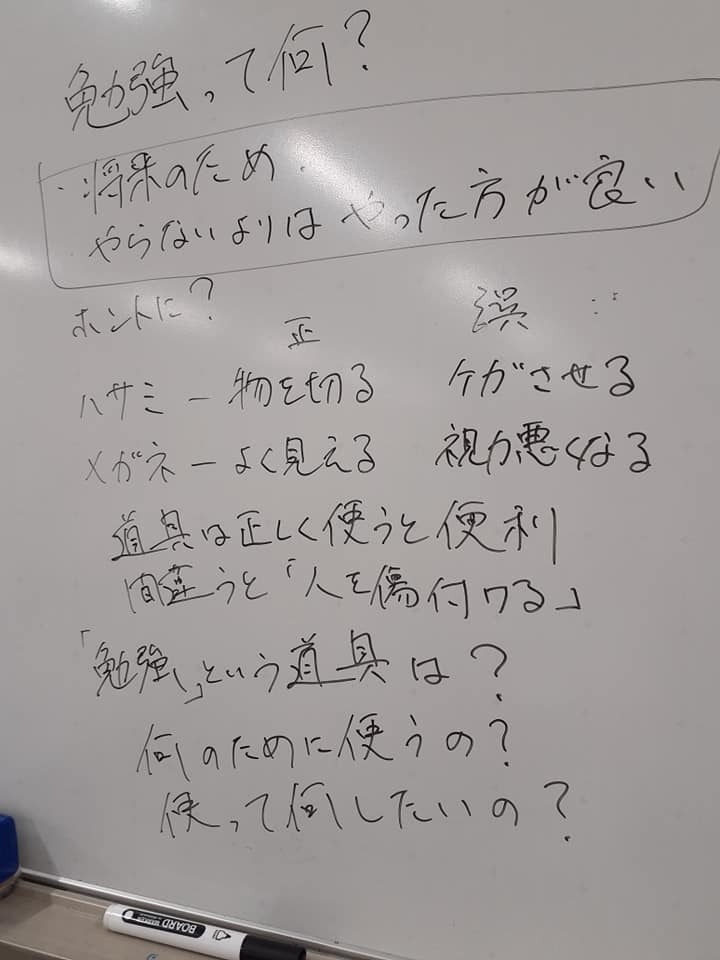 勉強って何？
・将来のため
やらないよりはやった方が良い
ホントに？
正 誤
ハサミ ー 物を切る ケガさせる
メガネ ー よく見える 視力悪くなる
道具は正しく使うと便利
間違うと「人を傷付ける」
「勉強」という道具は？
何のために使うの？
使って何したいの？
BOARD
MARKER